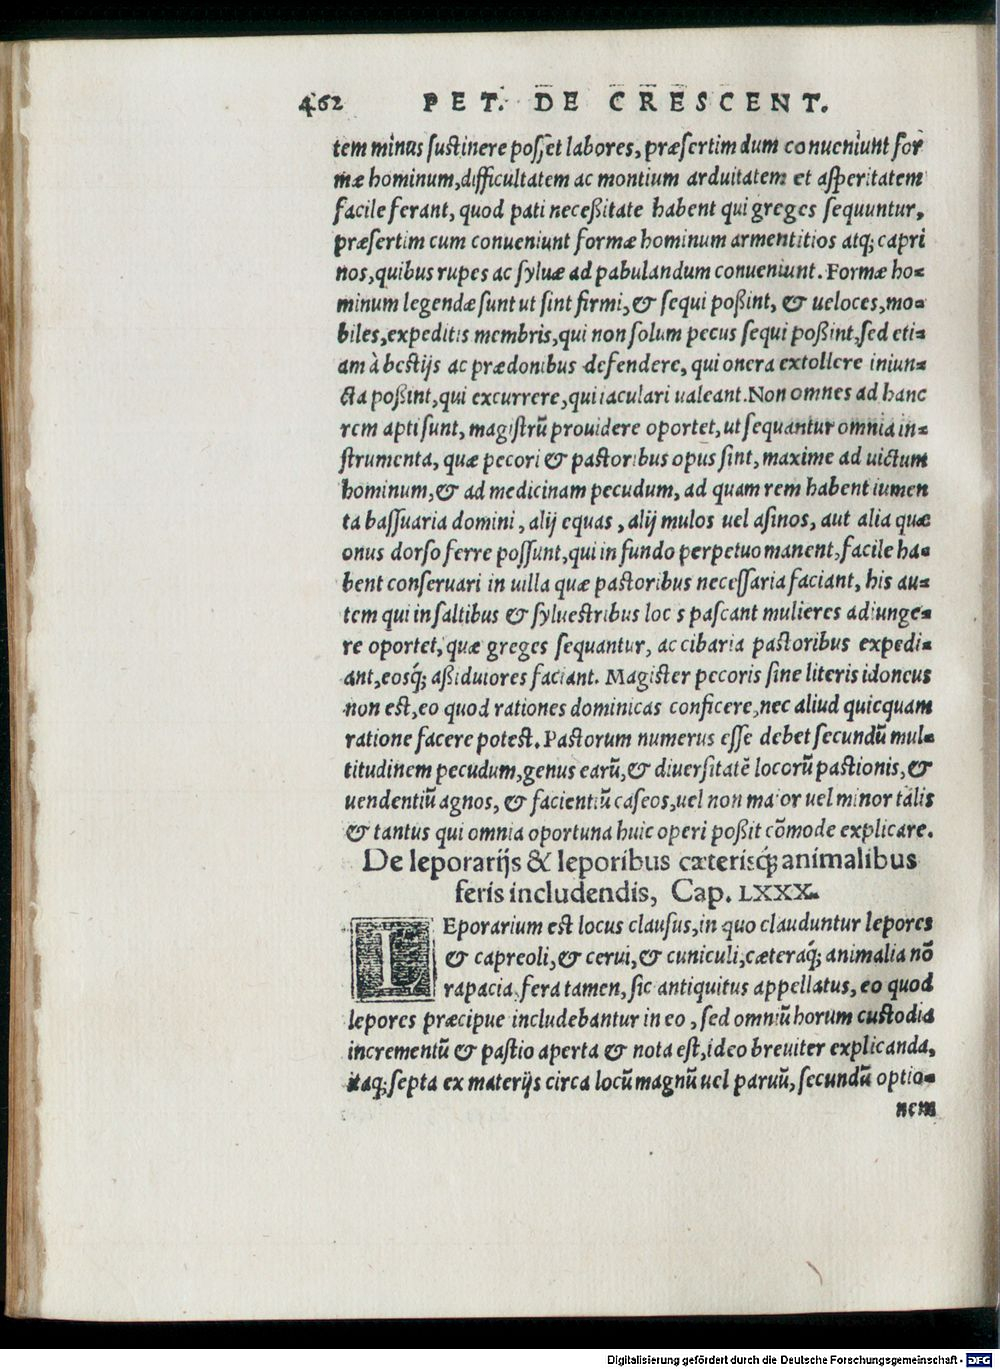 462 PET. DE CRESCENT.
tem minus sustinere posset labores, præsertim dum conueniunt for
mæ hominum, difficultatem ac montium arduitatem et asperitatem
facile ferant, quod pati neceßitate habent qui greges sequuntur,
præsertim cum conueniunt formæ hominum armentitios atq; capri
nos, quibus rupes ac syluæ ad pabulandum conueniunt. Formæ ho=
minum legendæ sunt ut sint firmi, & sequi poßint, & ueloces, mo=
biles, expeditis membris, qui non solum pecus sequi poßint, sed eti=
am à bestijs ac prædonibus defendere, qui onera extollere iniun=
cta poßint, qui excurrere, qui iaculari ualeant. Non omnes ad hanc
rem apti sunt, magistrũ prouidere oportet, ut sequantur omnia in=
strumenta, quæ pecori & pastoribus opus sint, maxime ad uictum
hominum, & ad medicinam pecudum, ad quam rem habent iumen
ta bassuaria domini, alij equas, alij mulos uel asinos, aut alia quæ
onus dorso ferre possunt, qui in fundo perpetuo manent, facile ha=
bent conseruari in uilla quæ pastoribus necessaria faciant, his au=
tem qui in saltibus & syluestribus loc s pascant mulieres adiunge=
re oportet, quæ greges sequantur, ac cibaria pastoribus expedi=
ant, eosq́; aßiduiores faciant. Magister pecoris sine literis idoneus
non est, eo quod rationes dominicas conficere, nec aliud quicquam
ratione facere potest. Pastorum numerus esse debet secundũ mul=
titudinem pecudum, genus earũ, & diuersitatẽ locorũ pastionis, &
uendentiũ agnos, & facientiũ caseos, uel non maior uel minor talis
& tantus qui omnia oportuna huic operi poßit cõmode explicare.
De leporarijs & leporibus cæterisq́; animalibus
feris includendis, Cap. LXXX.
LEporarium est locus clausus, in quo clauduntur lepores
& capreoli, & cerui, & cuniculi, cæteraq́; animalia nõ
rapacia, fera tamen, sic antiquitus appellatus, eo quod
lepores præcipue includebantur in eo, sed omniũ horum custodia
incrementũ & pastio aperta & nota est, ideo breuiter explicanda,
itaq; septa ex materijs circa locũ magnũ uel paruũ, secundũ optio=
nem
Digitalisierung gefördert durch die Deutsche Forschungsgemeinschaft - DFG